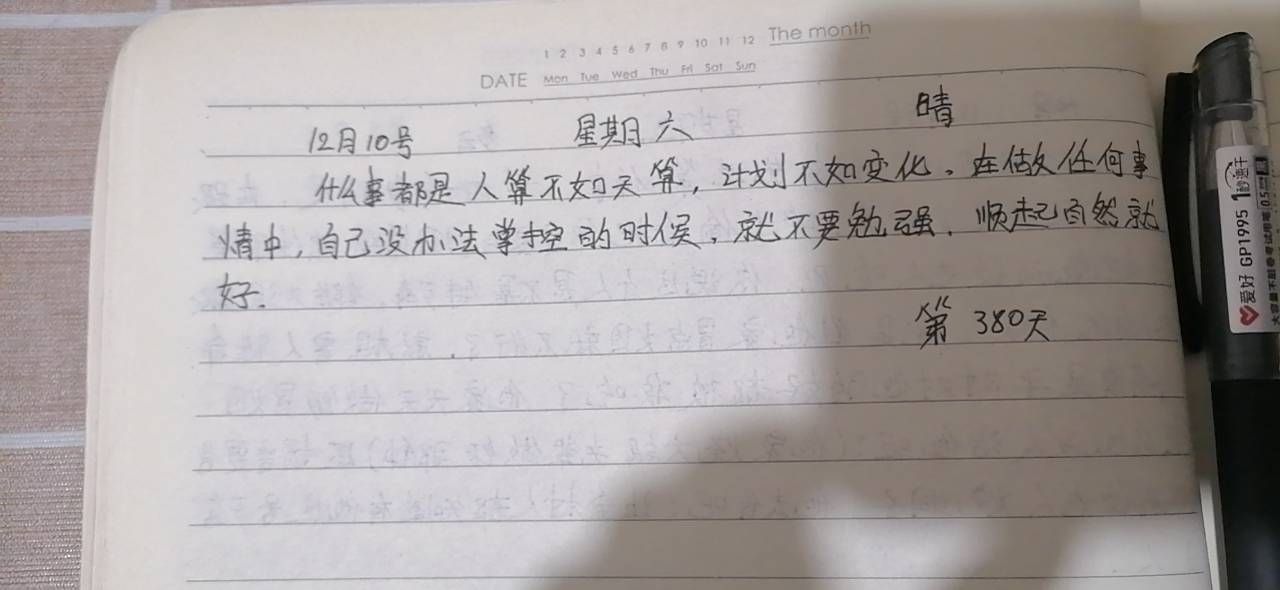 1 2 3 4 5 6 7 8 9 10 11 12 The month
DATE Mon Tue Wed Thu Fri Sat Sun
12月10号 星期六 晴
什么事都是人算不如天算，计划不如变化。在做任何事
情中，自己没办法掌控的时候，就不要勉强．顺起自然就
好．
第380天
爱好 GP1995 1秒速干